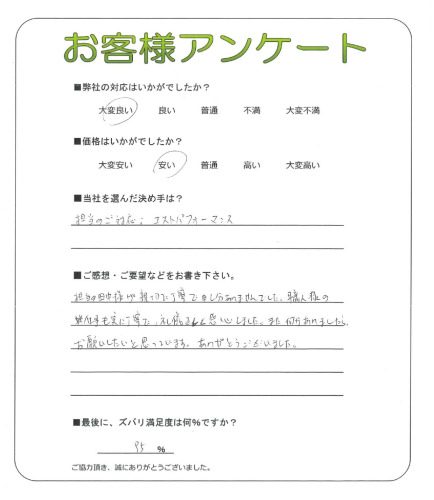 お客様アンケート
■弊社の対応はいかがでしたか?
大変良い 良い 普通 不満 大変不満
■価格はいかがでしたか?
大変安い 安い 普通 高い 大変高い
■当社を選んだ決め手は?
担当のご対応、コストパフォーマンス
■ご感想・ご要望などをお書き下さい。
担当 様が親切丁寧で申し分ありませんでした。職人様の
お仕事も実に丁寧だ、礼儀 と感心しました。また何かありましたら
お願いしたいと思っています。ありがとうございました。
■最後に、ズバリ満足度は何%ですか?
95 %
ご協力頂き、誠にありがとうございました。